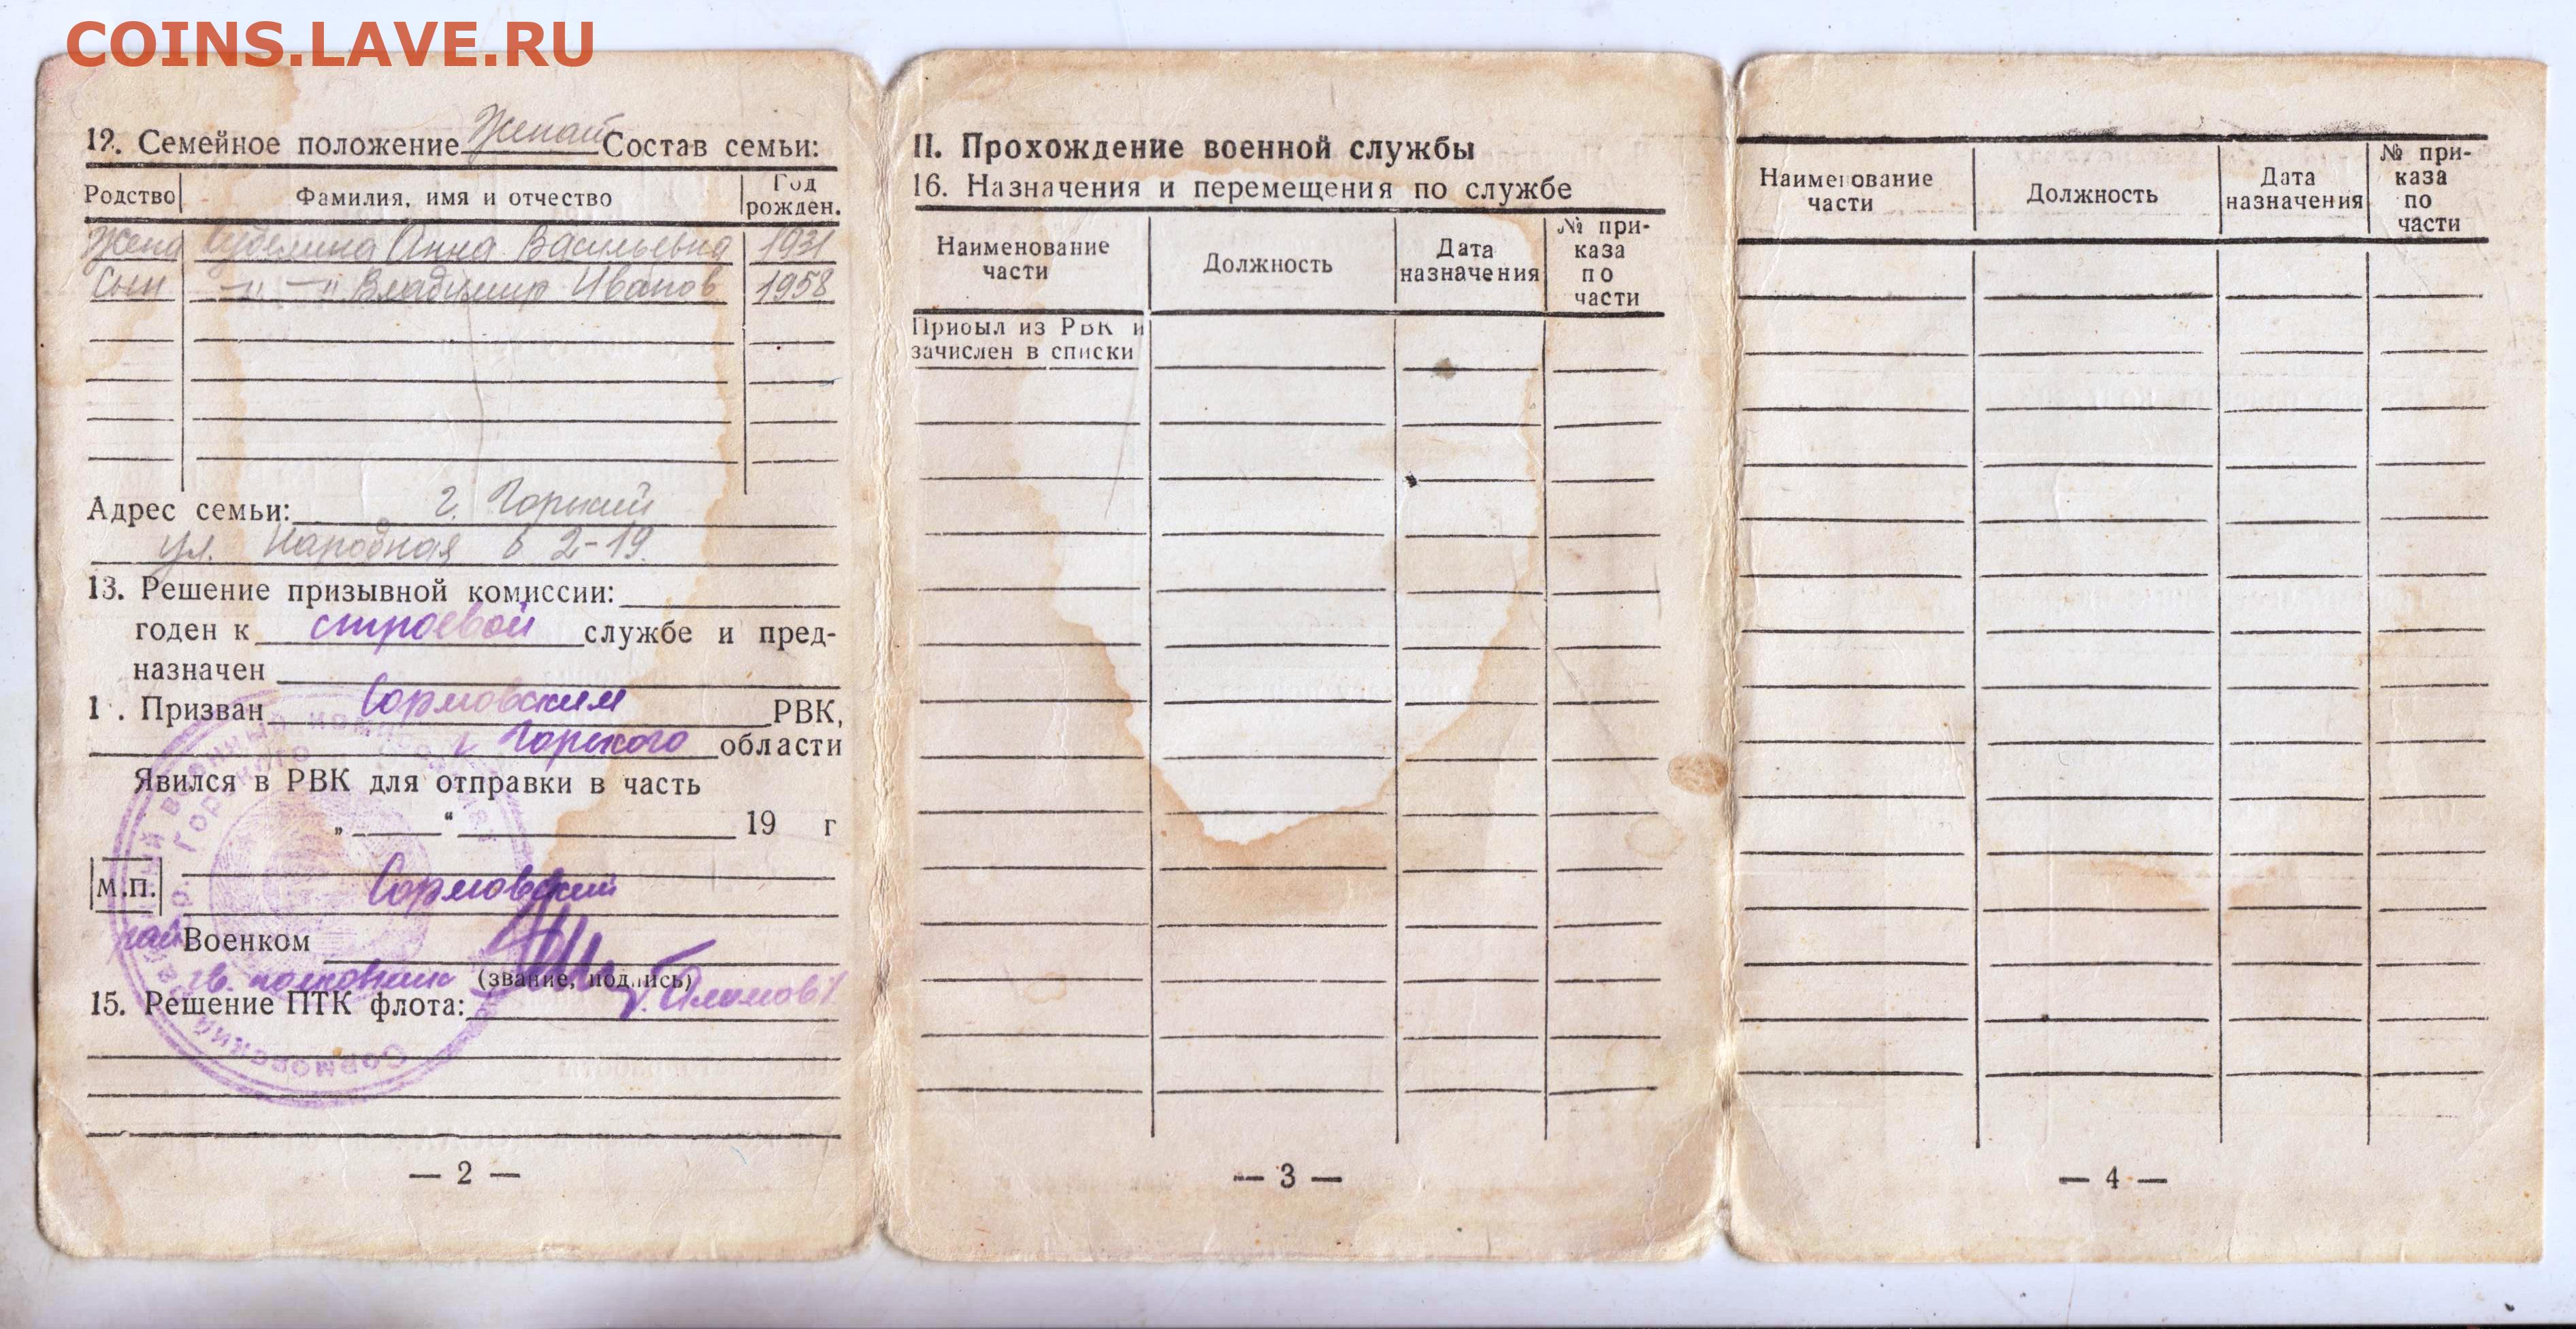 COINS.LAVE.RU
12. Семейное положение Женат Состав семьи:
Родство Фамилия, имя и отчество Год рожден.
Жена Анна Васильевна 1931
Сын —"— —"— Владимир Иванов 1958
Адрес семьи: г. Горький
ул. Народная 2-19.
13. Решение призывной комиссии:
годен к строевой службе и пред-
назначен
1 . Призван Сормовским РВК,
г. Горького области
Явился в РВК для отправки в часть
„ “ 19 г
М.П.
Сормовский
рай Военком
гв. полковник (звание, подпись)
15. Решение ПТК флота:
Сормовский
— 2 —
II. Прохождение военной службы
16. Назначения и перемещения по службе
Наименование части
Должность
Дата назначения
№ при-
каза
по
части
Прибыл из РВК и
зачислен в списки
— 3 —
Наименование
части
Должность
Дата
назначения
№ при-
каза
по
части
— 4 —